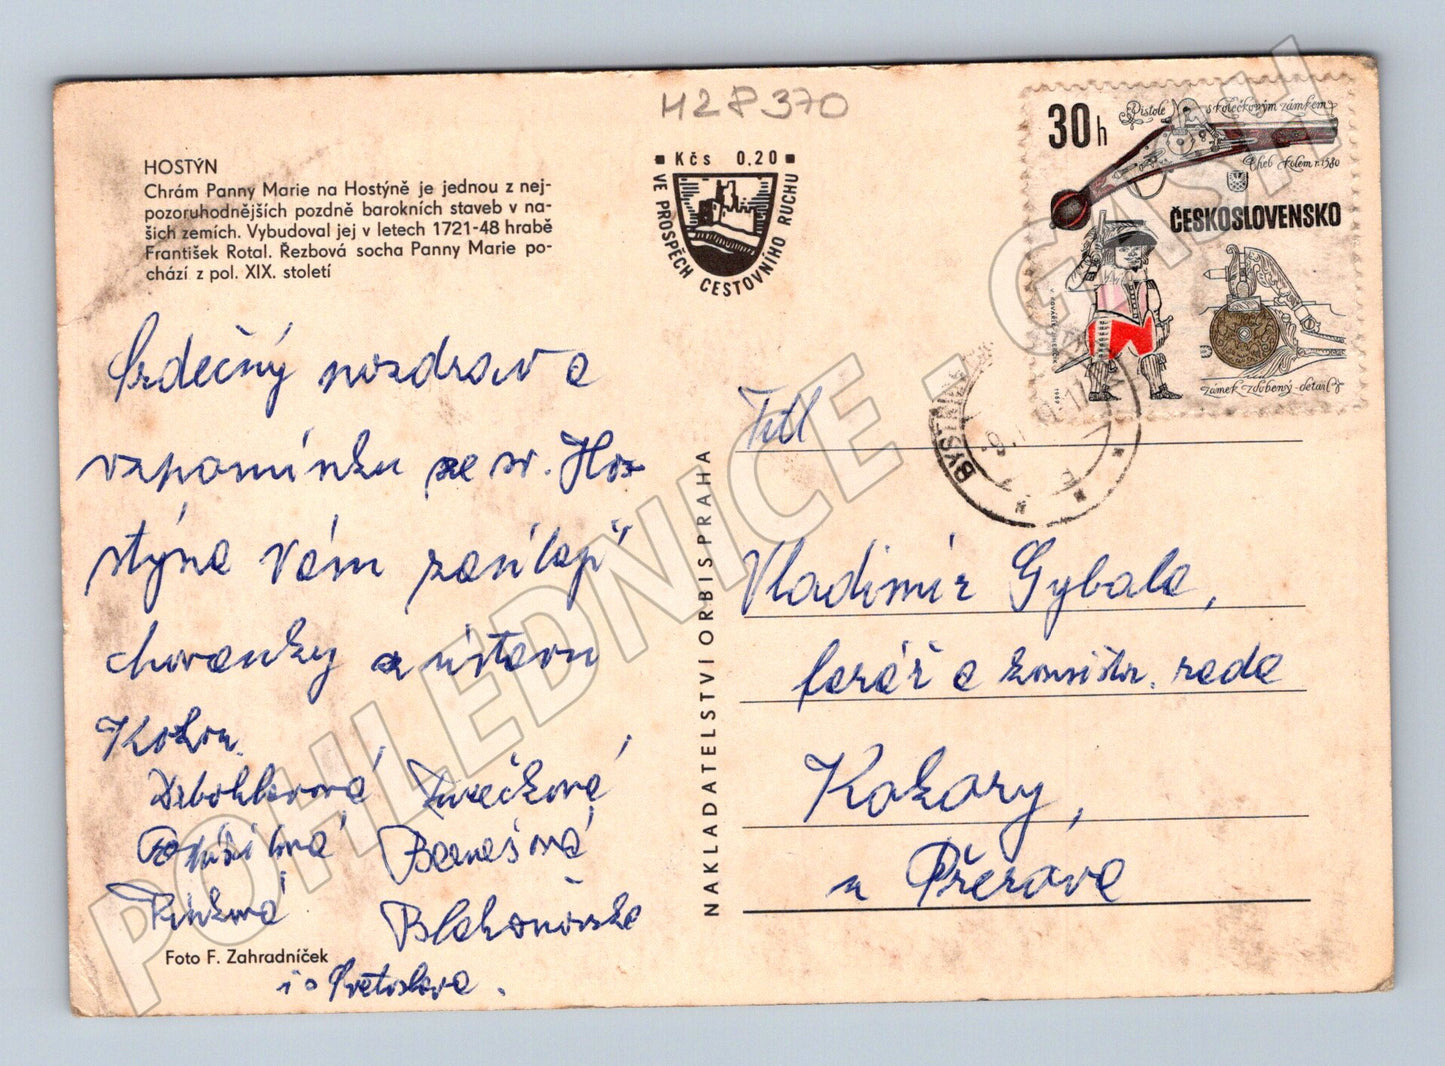 H28370
HOSTÝN
Chrám Panny Marie na Hostýně je jednou z nej-
pozoruhodnějších pozdně barokních staveb v na-
šich zemích. Vybudoval jej v letech 1721-48 hrabě
František Rotal. Řezbová socha Panny Marie po-
chází z pol. XIX. století
Kčs 0,20
VE PROSPĚCH CESTOVNÍHO RUCHU
30h
Pistole s kolečkovým zámkem
Cheb kolem r. 1580
ČESKOSLOVENSKO
zámek zdobený-detail
BYSTŘ
Srdečný pozdrav a
vzpomínku ze sv. Hos
týna Vám zasílají
chovanky a ústavu
Drbohlavová
Benešová
i s. Svatoslava.
Foto F. Zahradníček
NAKLADATELSTVÍ ORBIS PRAHA
Titl
Vladimír Gybala,
farář a konsistor. rada
Kokory,
u Přerova
POHLEDNICE - GASH